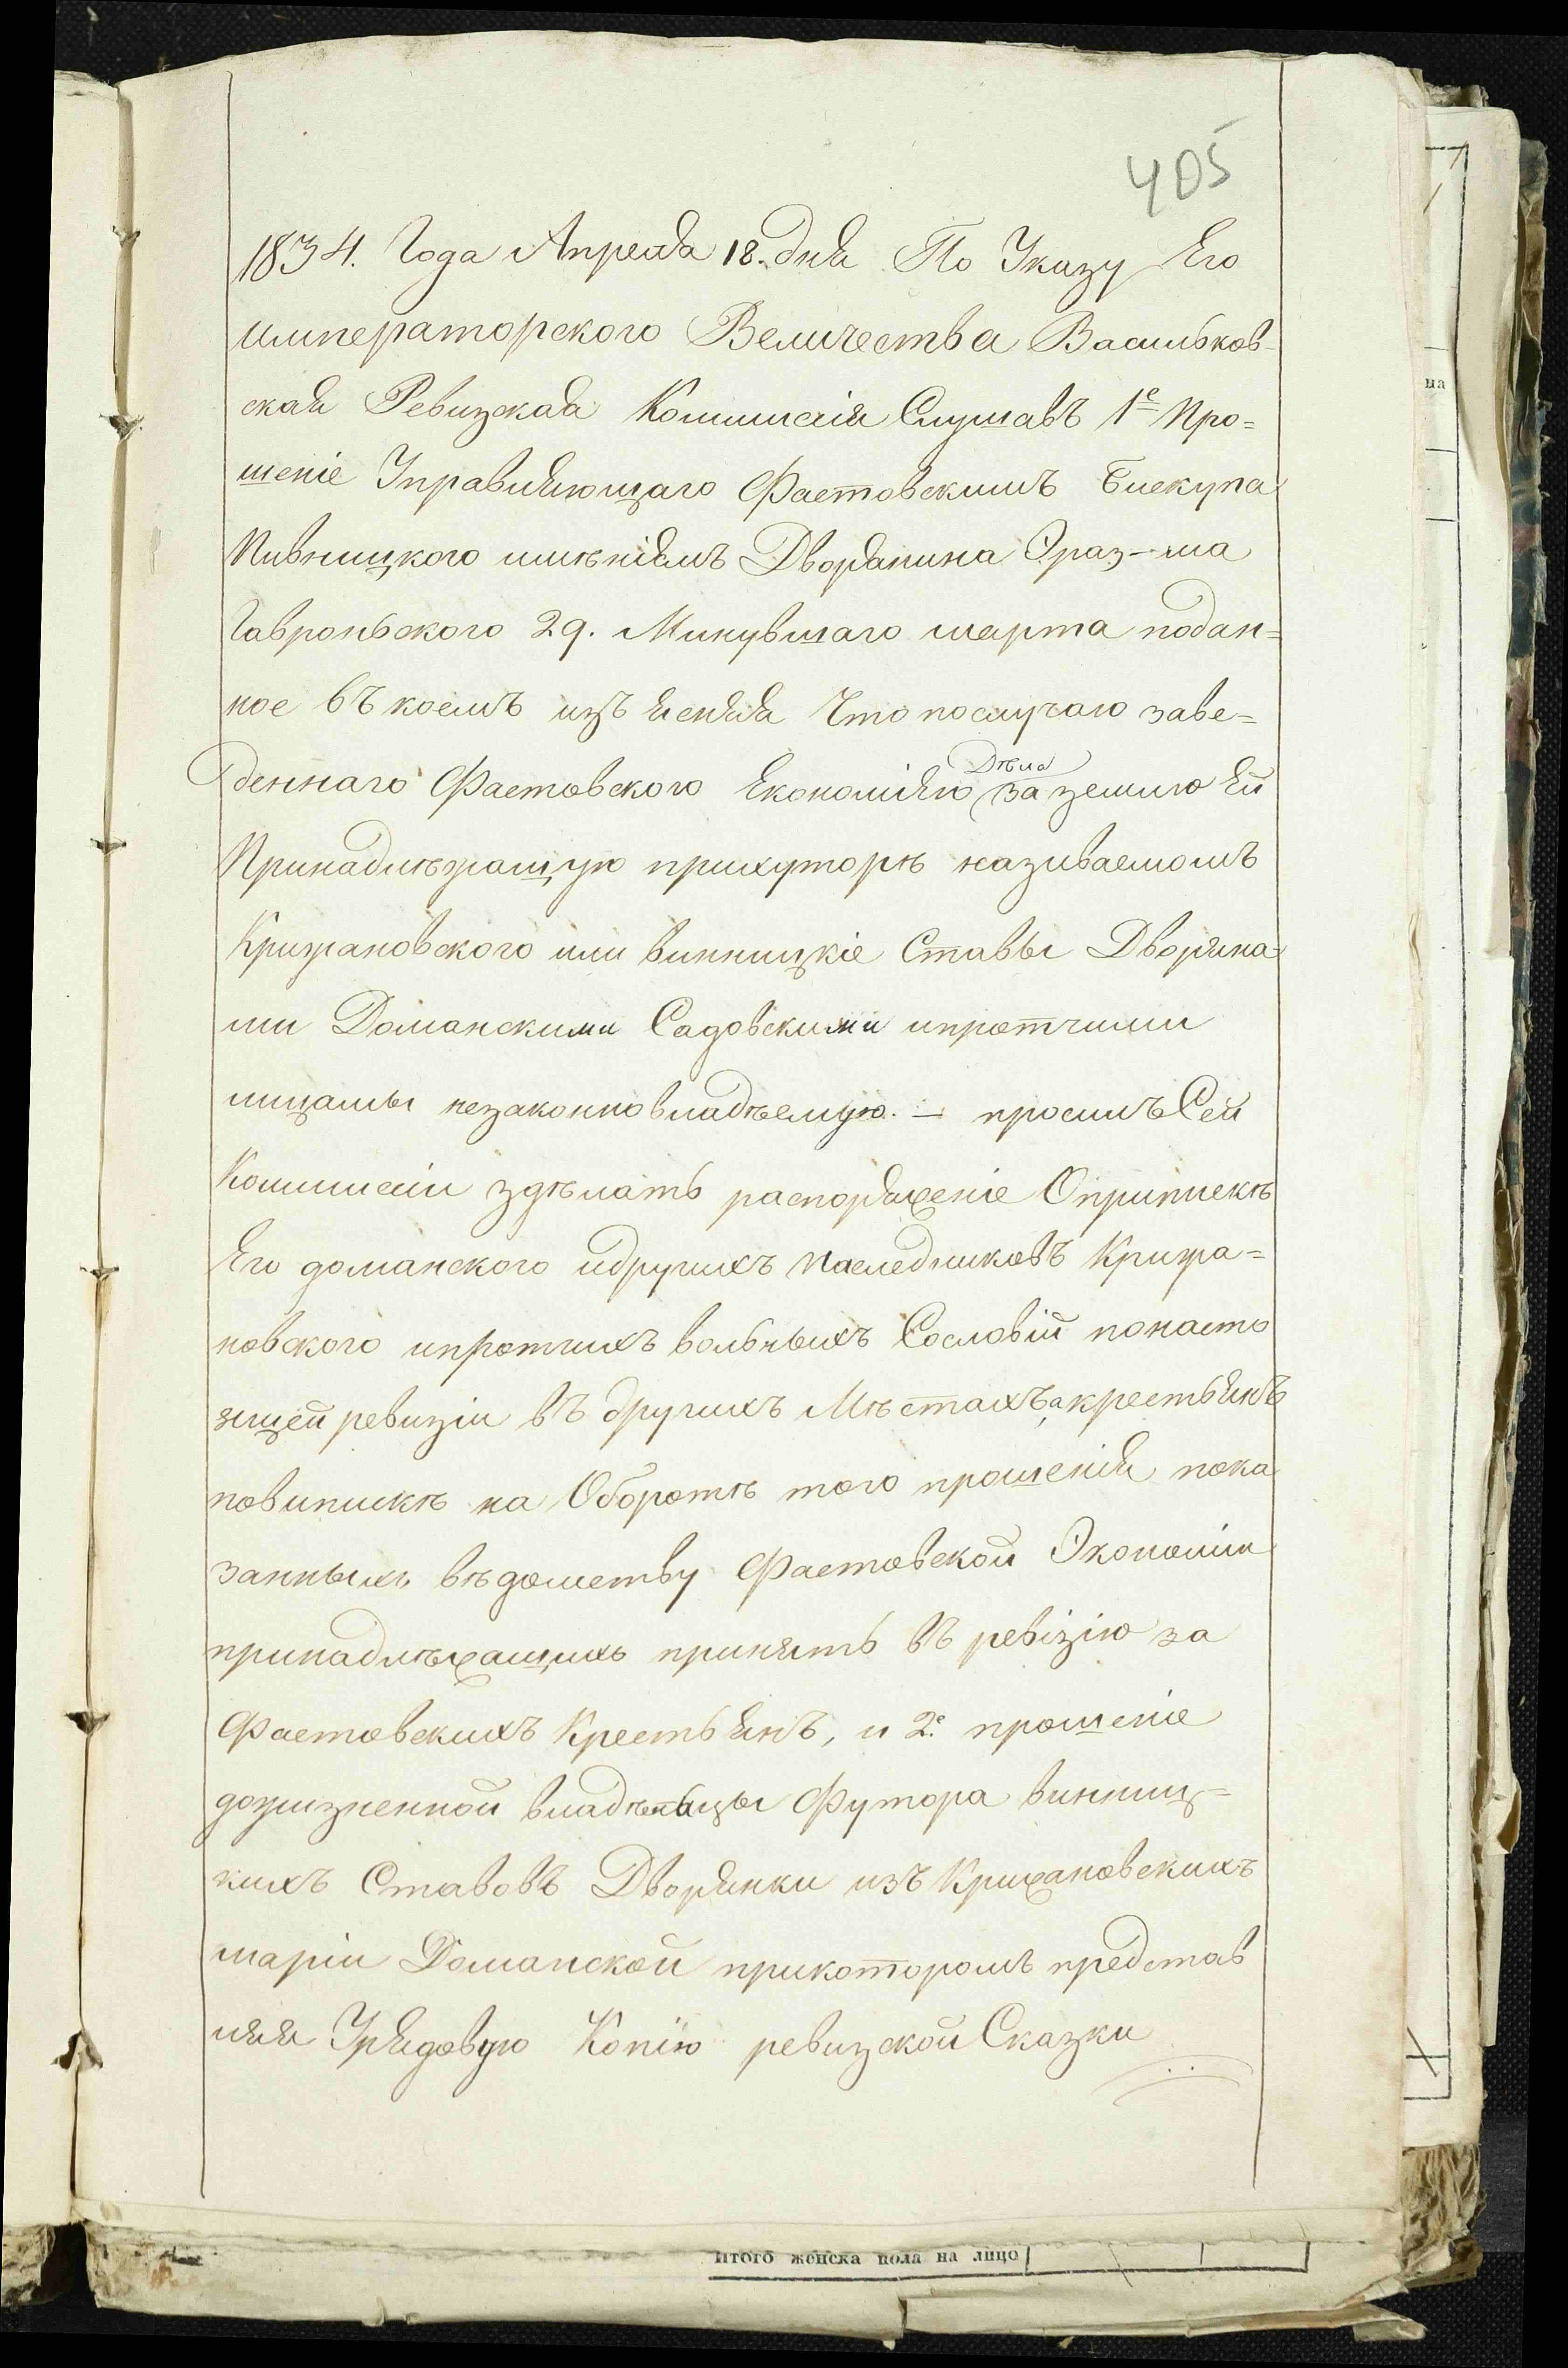 405
1834. Года Апреля 18. дня По Указу Его
императорского Величества Васильков-
ская Ревизская Коммисія Слушавъ 1е Про=
шеніе Управляющаго Фастовскимъ Бискупа
Пивницкого имѣніямъ Дворянина Эраз-ма
Гавроньского 29. Минувшаго марта подан=
ное въ коемъ изъясняя Что послучаю заве=
деннаго Фастовского Економіяю Дѣла за землю Ей
Принадлѣжащую прихуторѣ називаемомъ
Крижановского или винницкіе Ставы Дворяна-
ми Доманскими Садовскими ипротчими
лицамы незаконновладѣемую. — просилъ Сей
Коммисіи здѣлать распоряженіе Оприпискѣ
Его доманского идругихъ наследниковъ Крижа=
новского ипротчихъ вольныхъ Сословій понасто
ящей ревизіи въ другихъ Мѣстахъ, а крестьянъ
повипискѣ на Оборотѣ того прошенія пока
занныхъ вѣдомству Фастовской Экономіи
принадлѣжащихъ принять въ ревізію за
Фастовскихъ Крестьянъ, и 2е. прошеніе
дожизненной владѣльцы Футора винниц=
кихъ Ставовъ Дворянки изъ Крижановскихъ
маріи Доманской прикоторомъ представ
ляя Урядовую Копію ревизской Сказки
на
итого женска пола на лицо